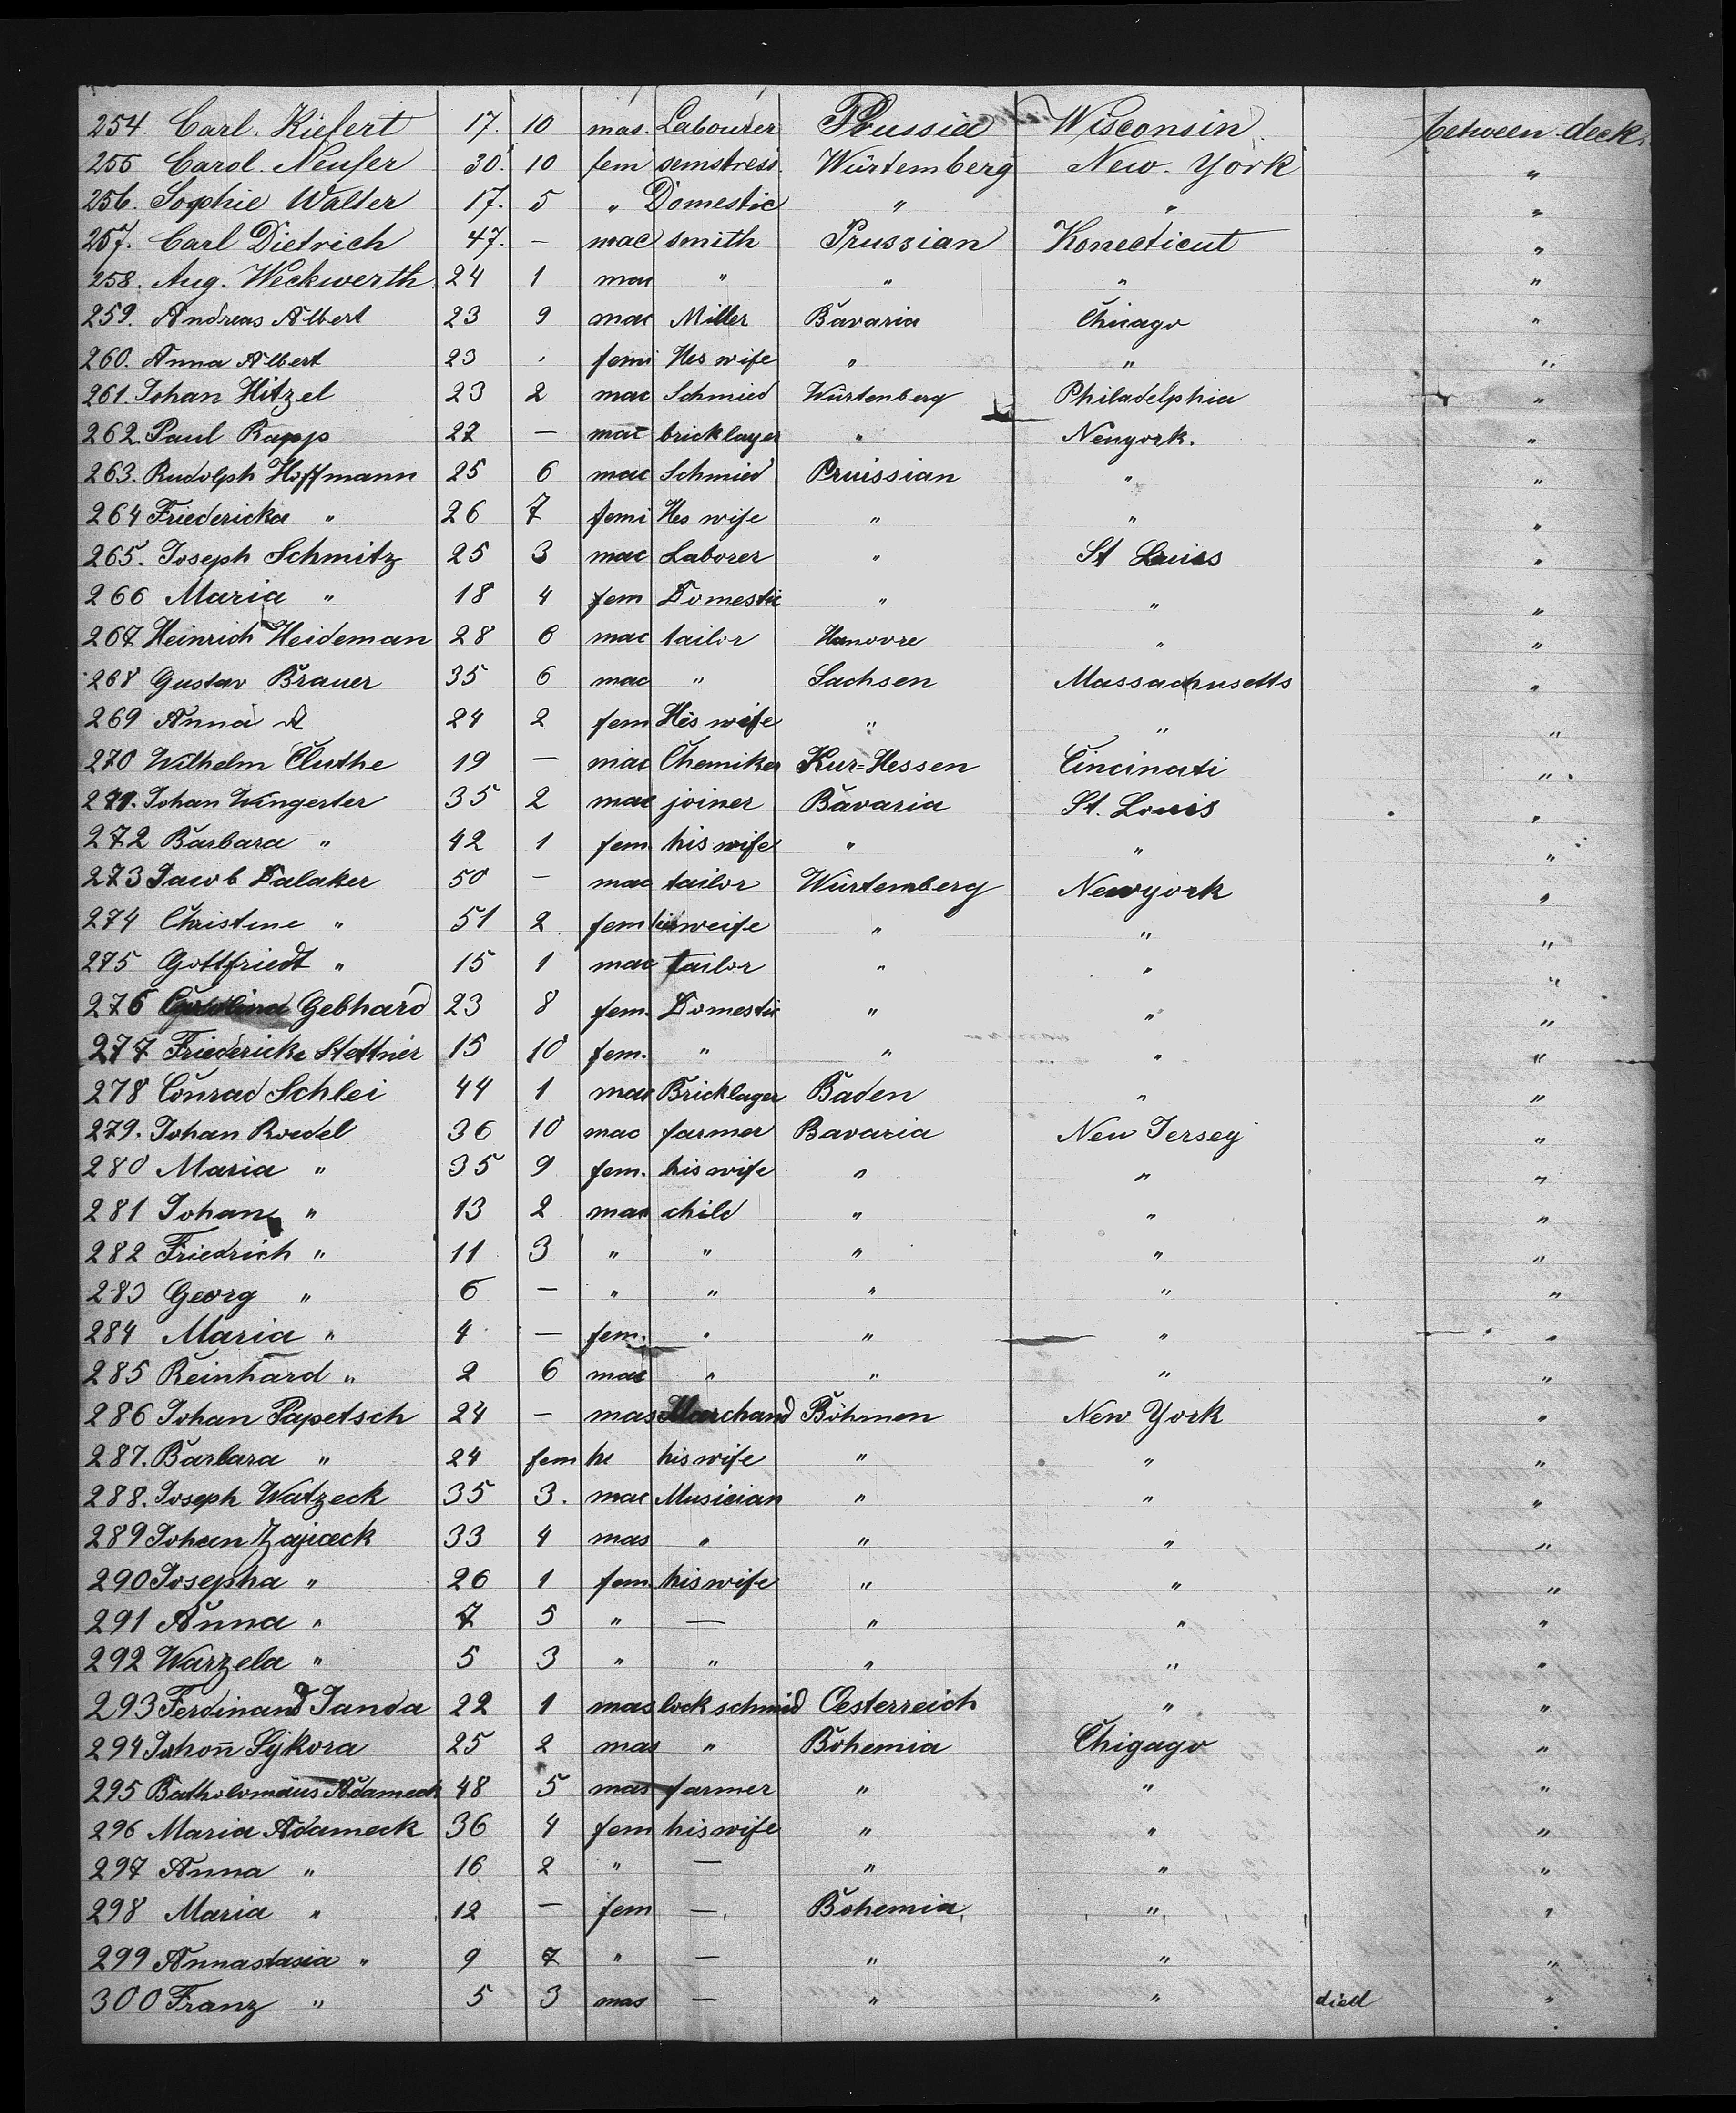 254. Carl. Kiefert 17. 10 mas. Labourer Prussia Wisconsin between deck.
255 Carol. Neufer 30. 10 fem semstress. Würtemberg New. York "
256. Sophie Walter 17. 5 " Domestic " " "
257. Carl Dietrich 47. — mac smith Prussian Konecticut "
258. Aug. Weckwerth 24 1 mas " " " "
259. Andreas Albert 23 9 mac Miller Bavaria Chicago "
260. Anna Albert 23 . femi Hes wife " " "
261. Johan Hitzel 23 2 mac Schmied Würtenberg Philadelphia "
262. Paul Rapp 22 — mac bricklayer " Newyork. "
263. Rudolph Hoffmann 25 6 mac Schmied Pruissian " "
264 Friedericka " 26 7 femi Hes wife " " "
265. Joseph Schmitz 25 3 mac Laborer " St Louis "
266 Maria " 18 4 fem Domestic " " "
267 Heinrich Heideman 28 6 mac tailor Hanovre " "
268 Gustav Brauer 35 6 mac " Sachsen Massachusetts "
269 Anna 24 2 fem His wife " " "
270 Wilhelm Cluthe 19 — mac Chemiker Kur=Hessen Cincinati "
271. Johan Wingerter 35 2 mac joiner Bavaria St. Louis "
272 Barbara " 42 1 fem his wife " " "
273 Jacob Dalaker 50 — mac tailor Würtemberg Newyork "
274 Christine " 51 2 fem his weife " " "
275 Gottfriedt " 15 1 mac tailor " " "
276 Carolina Gebhard 23 8 fem. Domestic " " "
277 Friedericke Stettner 15 10 fem. " " " "
278 Conrad Schlei 44 1 mas Bricklager Baden " "
279. Johan Roedel 36 10 mac farmer Bavaria New Jersey "
280 Maria " 35 9 fem. his wife " " "
281 Johan " 13 2 mas child " " "
282 Friedrich " 11 3 " " " " "
283 Georg " 6 — " " " " "
284 Maria " 4 — fem. " " " "
285 Reinhard " 2 6 mac " " " "
286 Johan Papetsch 24 — mas Marchand Böhmen New York "
287. Barbara " 24 fem he his wife " " "
288. Joseph Watzeck 35 3. mac Musician " " "
289 Johan Zajiceck 33 4 mas " " " "
290 Josepha " 26 1 fem his wife " " "
291 Anna " 7 5 " — " " "
292 Warzela " 5 3 " " " " "
293 Ferdinand Janda 22 1 mas lock schmid Oesterreich " "
294 Johon̅ Sykora 25 2 mas " Bohemia Chigago "
295 Batholomäus Adameck 48 5 mas farmer " " "
296 Maria Adameck 36 4 fem his wife " " "
297 Anna " 16 2 " — " " "
298 Maria " 12 — fem — Bohemia " "
299 Annastasia " 9 7 " — " " "
300 Franz " 5 3 mas — " " died "